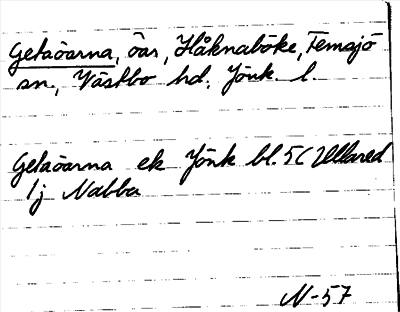 Getaöarna, öar, Håknaböke, Femsjö
sn., Västbo hd. Jönk. l.
Getaöarna ek Jönk bl. 5C Ullared
1j Nabba
N-57